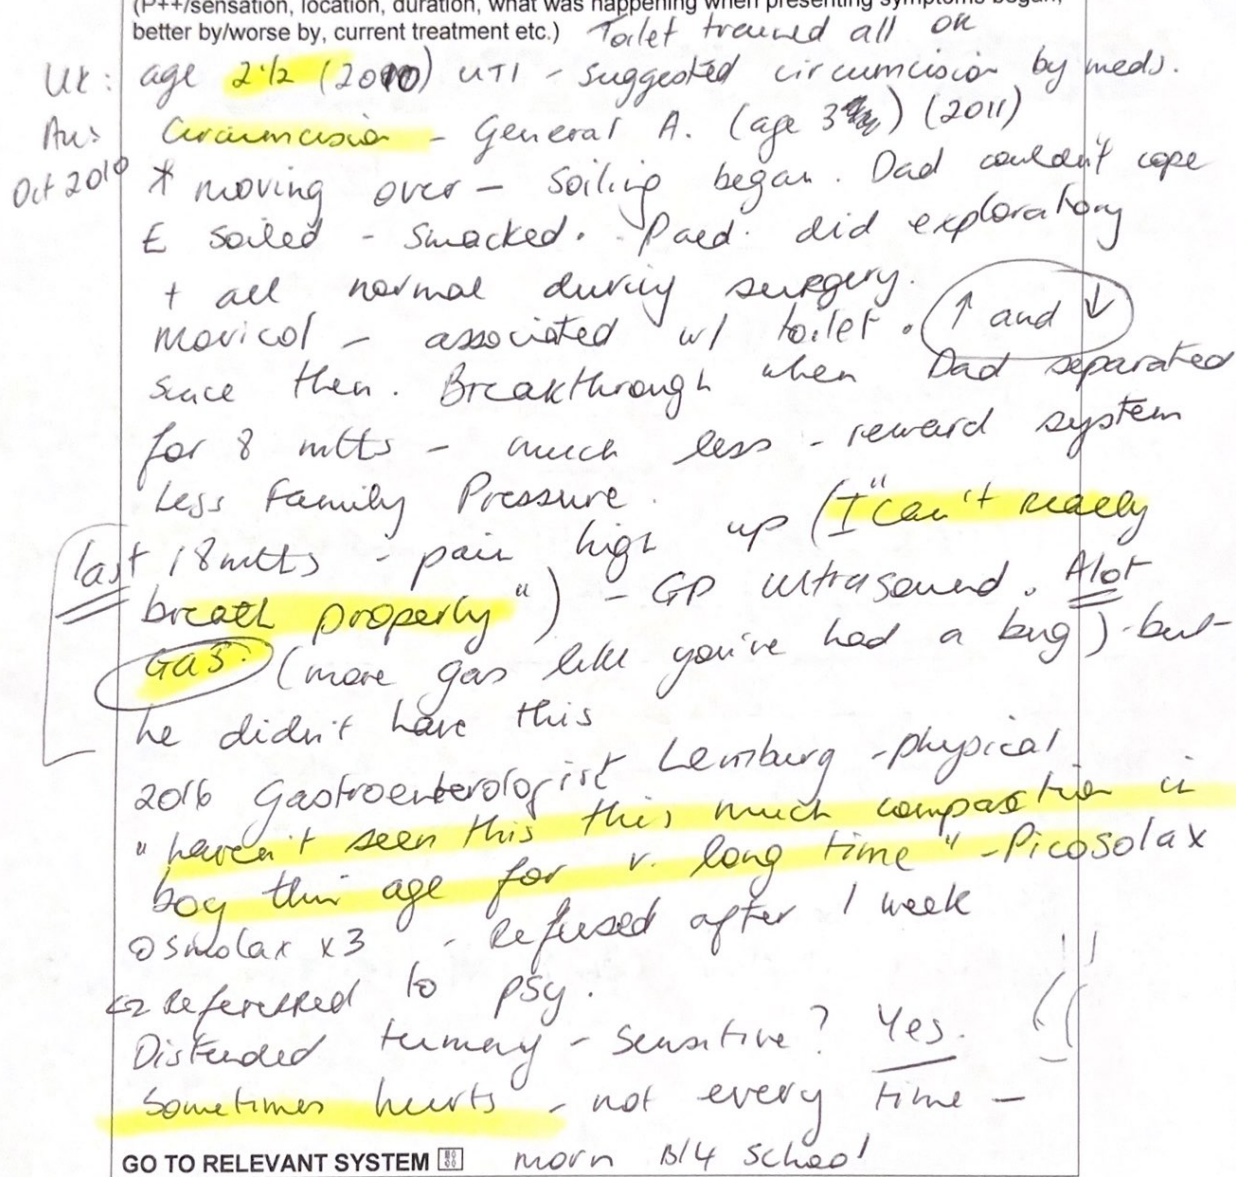 (P++/sensation, location, duration, what was happening when presenting symptoms began,
better by/worse by, current treatment etc.) Toilet trained all ok
UK: age 2 1/2 (2010) UTI - suggested circumcision by meds.
Aus Circumcision - General A. (age 3 ) (2011)
Oct 2010 * moving over - Soiling began. Dad couldn't cope
soiled - smacked. Paed. did exploratory
+ all normal during surgery.
movicol - associated w/ toilet. ↑ and ↓
since then. Breakthrough when Dad separated
for 8 mths - much less - reward system
Less Family Pressure.
last 18mths - pain high up (I "can't really
breath properly") - GP ultrasound. Alot
Gas. (more gas like you've had a bug) - but
he didn't have this
2016 Gastroenterologist Lemburg - physical
"haven't seen this this much compaction in
boy this age for v. long time" - Picosolax
Osmolax x3 - Refused after 1 week
Referred to psy.
Distended tummy - sensitive? Yes.
Sometimes hurts - not every time -
GO TO RELEVANT SYSTEM morn B/4 school